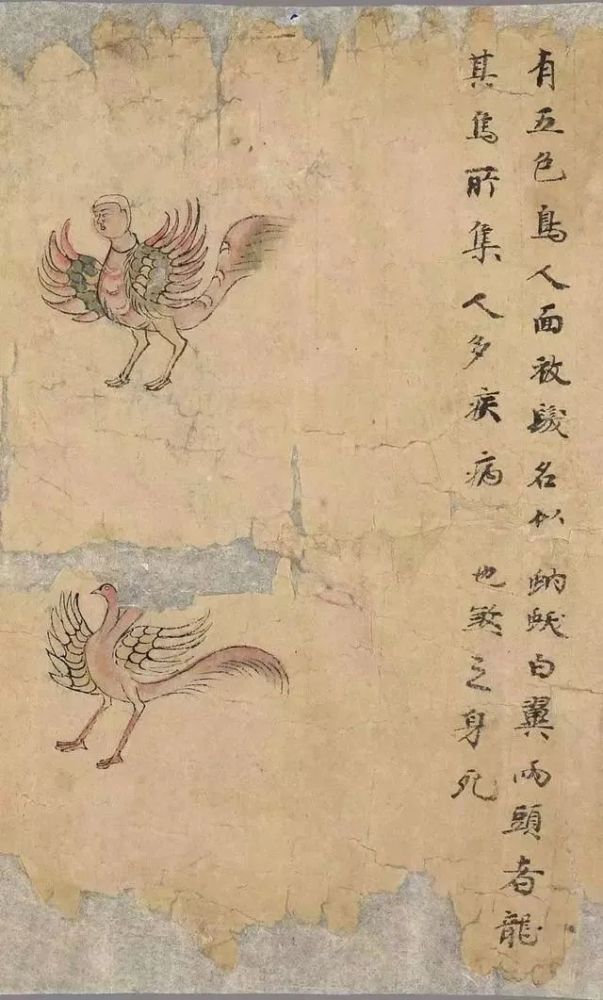 有五色鳥人面被髮名似蚋白翼兩頭者龍
其鳥所集人多疾病 也煞之身死